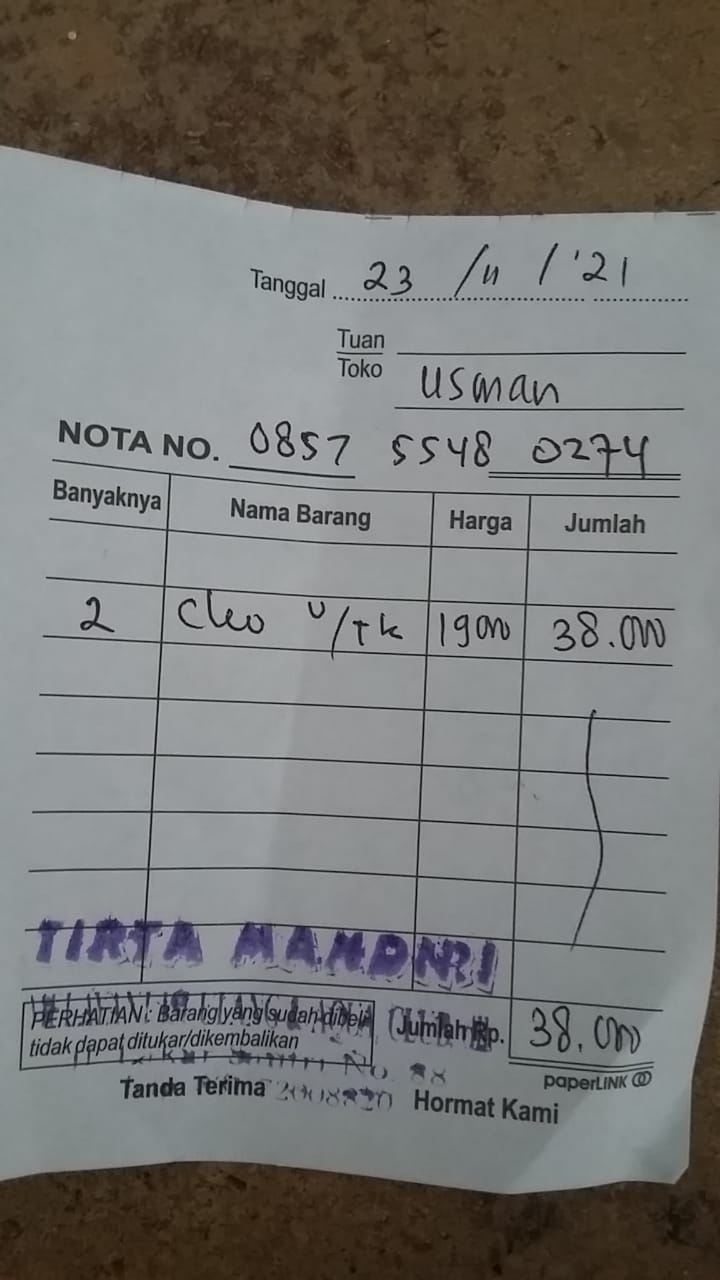 Tanggal 23 /11 / '21
Tuan
Toko Usman
NOTA NO. 0857 5548 0274
Banyaknya Nama Barang Harga Jumlah
2 Cleo u/Tk 19000 38.000
TIRTA MANDIRI
PERHATIAN : Barang yang sudah dibeli Jumlah Rp. 38.000
tidak dapat ditukar/dikembalikan
No. 88
paperLINK
Tanda Terima Hormat Kami